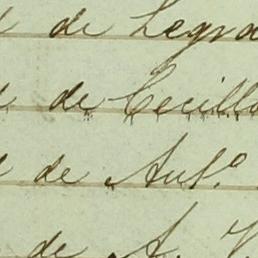 de Legra
de Cecilla
de Ant.º
de A. V